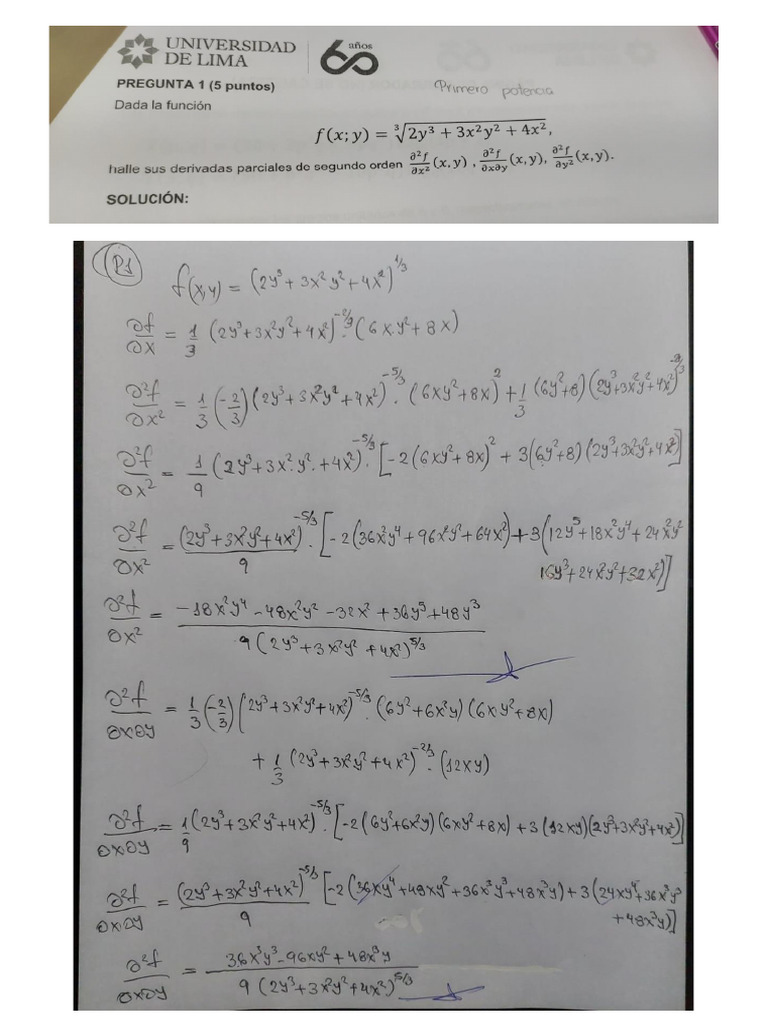 UNIVERSIDAD
DE LIMA
60 años
PREGUNTA 1 (5 puntos)
Primero potencia
Dada la función
f(x; y) = ∛(2y³ + 3x²y² + 4x²),
halle sus derivadas parciales de segundo orden ∂²f/∂x² (x, y) , ∂²f/∂x∂y (x, y), ∂²f/∂y² (x, y).
SOLUCIÓN:
P1
f(x,y) = (2y³ + 3x²y² + 4x²)^1/3
∂f/∂x = 1/3 (2y³+3x²y²+4x²)^-2/3 · (6x.y²+8x)
∂²f/∂x² = 1/3 (-2/3) (2y³+3x²y²+4x²)^-5/3 · (6xy²+8x)² + 1/3 (6y²+8) (2y³+3x²y²+4x²)^-2/3
∂²f/∂x² = 1/9 (2y³+3x².y².+4x²)^-5/3 · [-2(6xy²+8x)² + 3(6y²+8) (2y³+3x²y²+4x²)]
∂²f/∂x² = (2y³+3x²y²+4x²)^-5/3/9 · [-2(36x²y⁴+96x²y²+64x²)+3(12y⁵+18x²y⁴+24x²y²
16y³+24x²y²+32x²)]
∂²f/∂x² = (-18x²y⁴-48x²y²-32x²+36y⁵+48y³)/(9(2y³+3x²y²+4x²)^5/3)
∂²f/∂x∂y = 1/3 (-2/3) (2y³+3x²y²+4x²)^-5/3 · (6y²+6x²y) (6x.y²+8x)
+ 1/3 (2y³+3x²y²+4x²)^-2/3 · (12xy)
∂²f/∂x∂y = 1/9 (2y³+3x²y²+4x²)^-5/3 · [-2(6y²+6x²y)(6xy²+8x) + 3(12xy)(2y³+3x²y²+4x²)]
∂²f/∂x∂y = (2y³+3x²y²+4x²)^-5/3/9 [-2(36xy⁴+48xy²+36x³y³+48x³y)+3(24xy⁴+36x³y³
+48x³y)]
∂²f/∂x∂y = (36x³y³-96xy²+48x³y)/(9(2y³+3x²y²+4x²)^5/3)